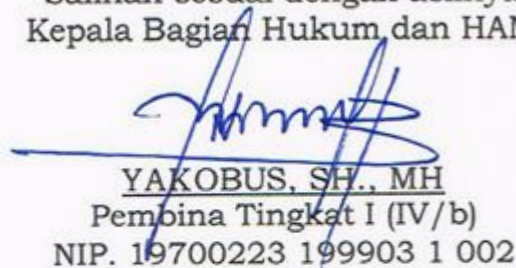 Salinan sesuai dengan aslinya
Kepala Bagian Hukum dan HAM
YAKOBUS, SH., MH
Pembina Tingkat I (IV/b)
NIP. 19700223 199903 1 002